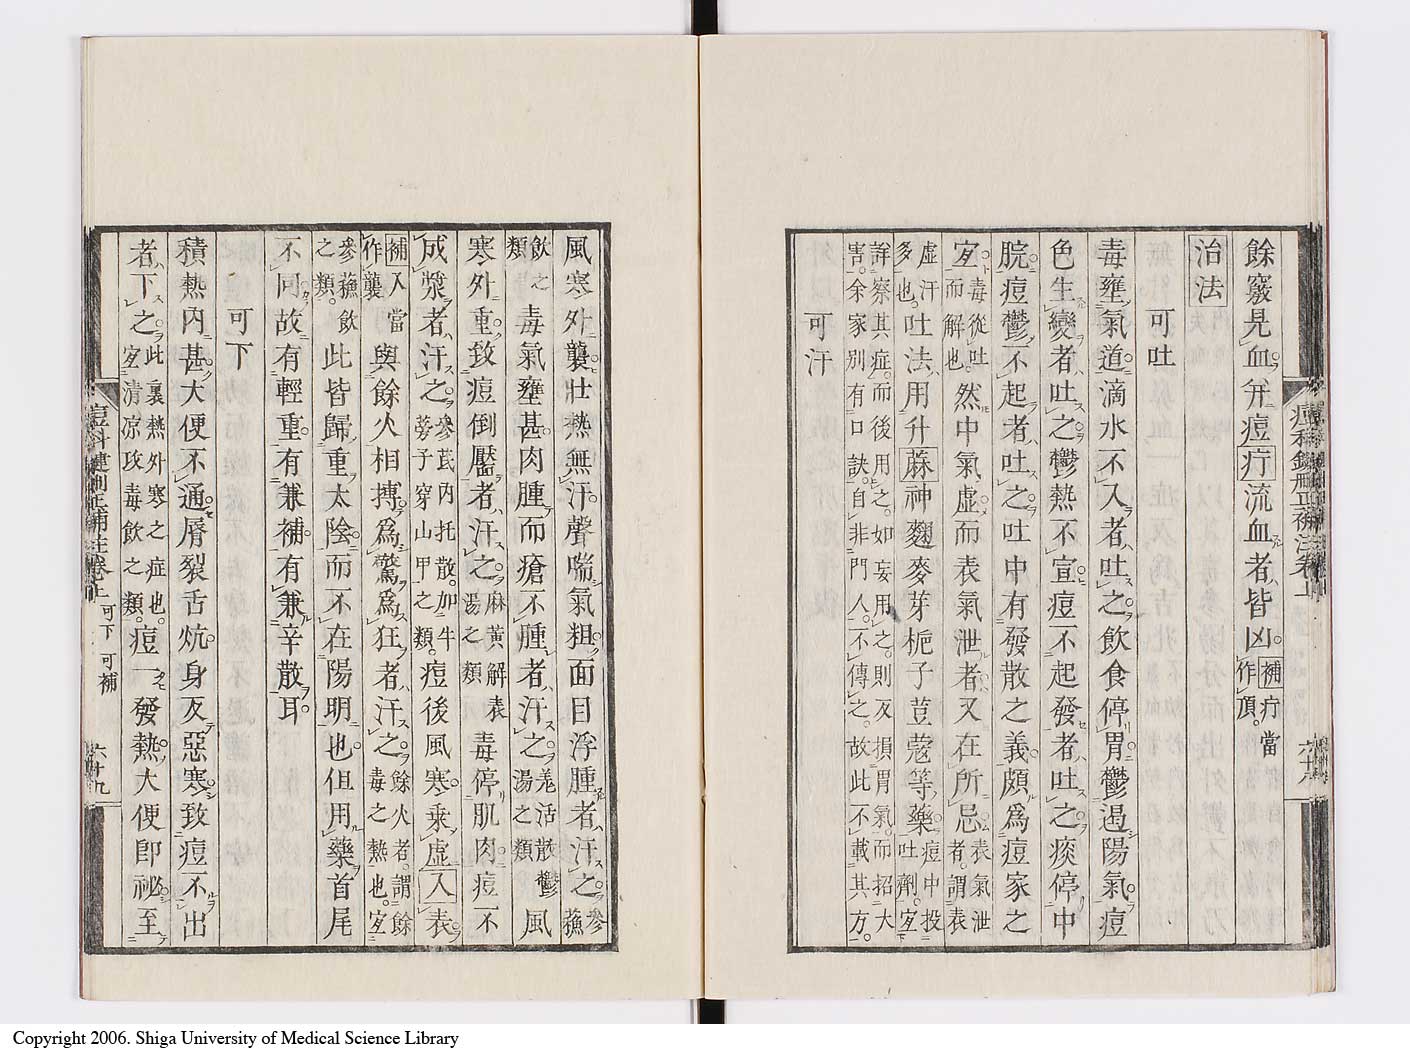 餘竅見血。并痘疔流血者皆凶。補疔當作頂。
治法
可吐
毒壅氣道滴水不入者吐之飲食停胃鬱遏陽氣痘
色生變者吐之鬱熱不宣痘不起發者吐之痰停中
脘痘鬱不起者吐之吐中有發散之義頗爲痘家之
宜。而毒從吐解也。然中氣虛而表氣泄者又在所忌表氣泄者。謂表
虛汗多也。吐法。用升蔴神麴麥芽梔子荳蔻等藥痘中投吐劑。宜
詳察其症。而後用之。如妄用之。則反損胃氣。而招大
害。余家別有口訣。自非門人。不傳之。故此不載其方。
可汗
風寒外襲壯熱無汗聲喘氣粗面目浮腫者汗之參蘓
飲之類毒氣壅甚肉腫而瘡不腫者汗之羗活散鬱湯之類風
寒外重致痘倒靨者汗之麻黃解表湯之類毒停肌肉痘不
成漿者汗之參芪內托散。加牛蒡子穿山甲之類。痘後風寒乘虛入表。
補入當作襲與餘火相搏爲驚爲狂者汗之餘火者。謂餘毒之熱也。宜
參蘓飲之類。此皆歸重太陰而不在陽明也但用藥首尾
不同故有輕重有兼補有兼辛散耳
可下
積熱內甚大便不通脣裂舌炕身反惡寒致痘不出
者下之此裏熱外寒之症也。宜清凉攻毒飲之類。痘一發熱大便即祕至
痘科鍵刪正補註卷上
六十八
痘科鍵刪正補註卷上
可下 可補
六十九
Copyright 2006. Shiga University of Medical Science Library